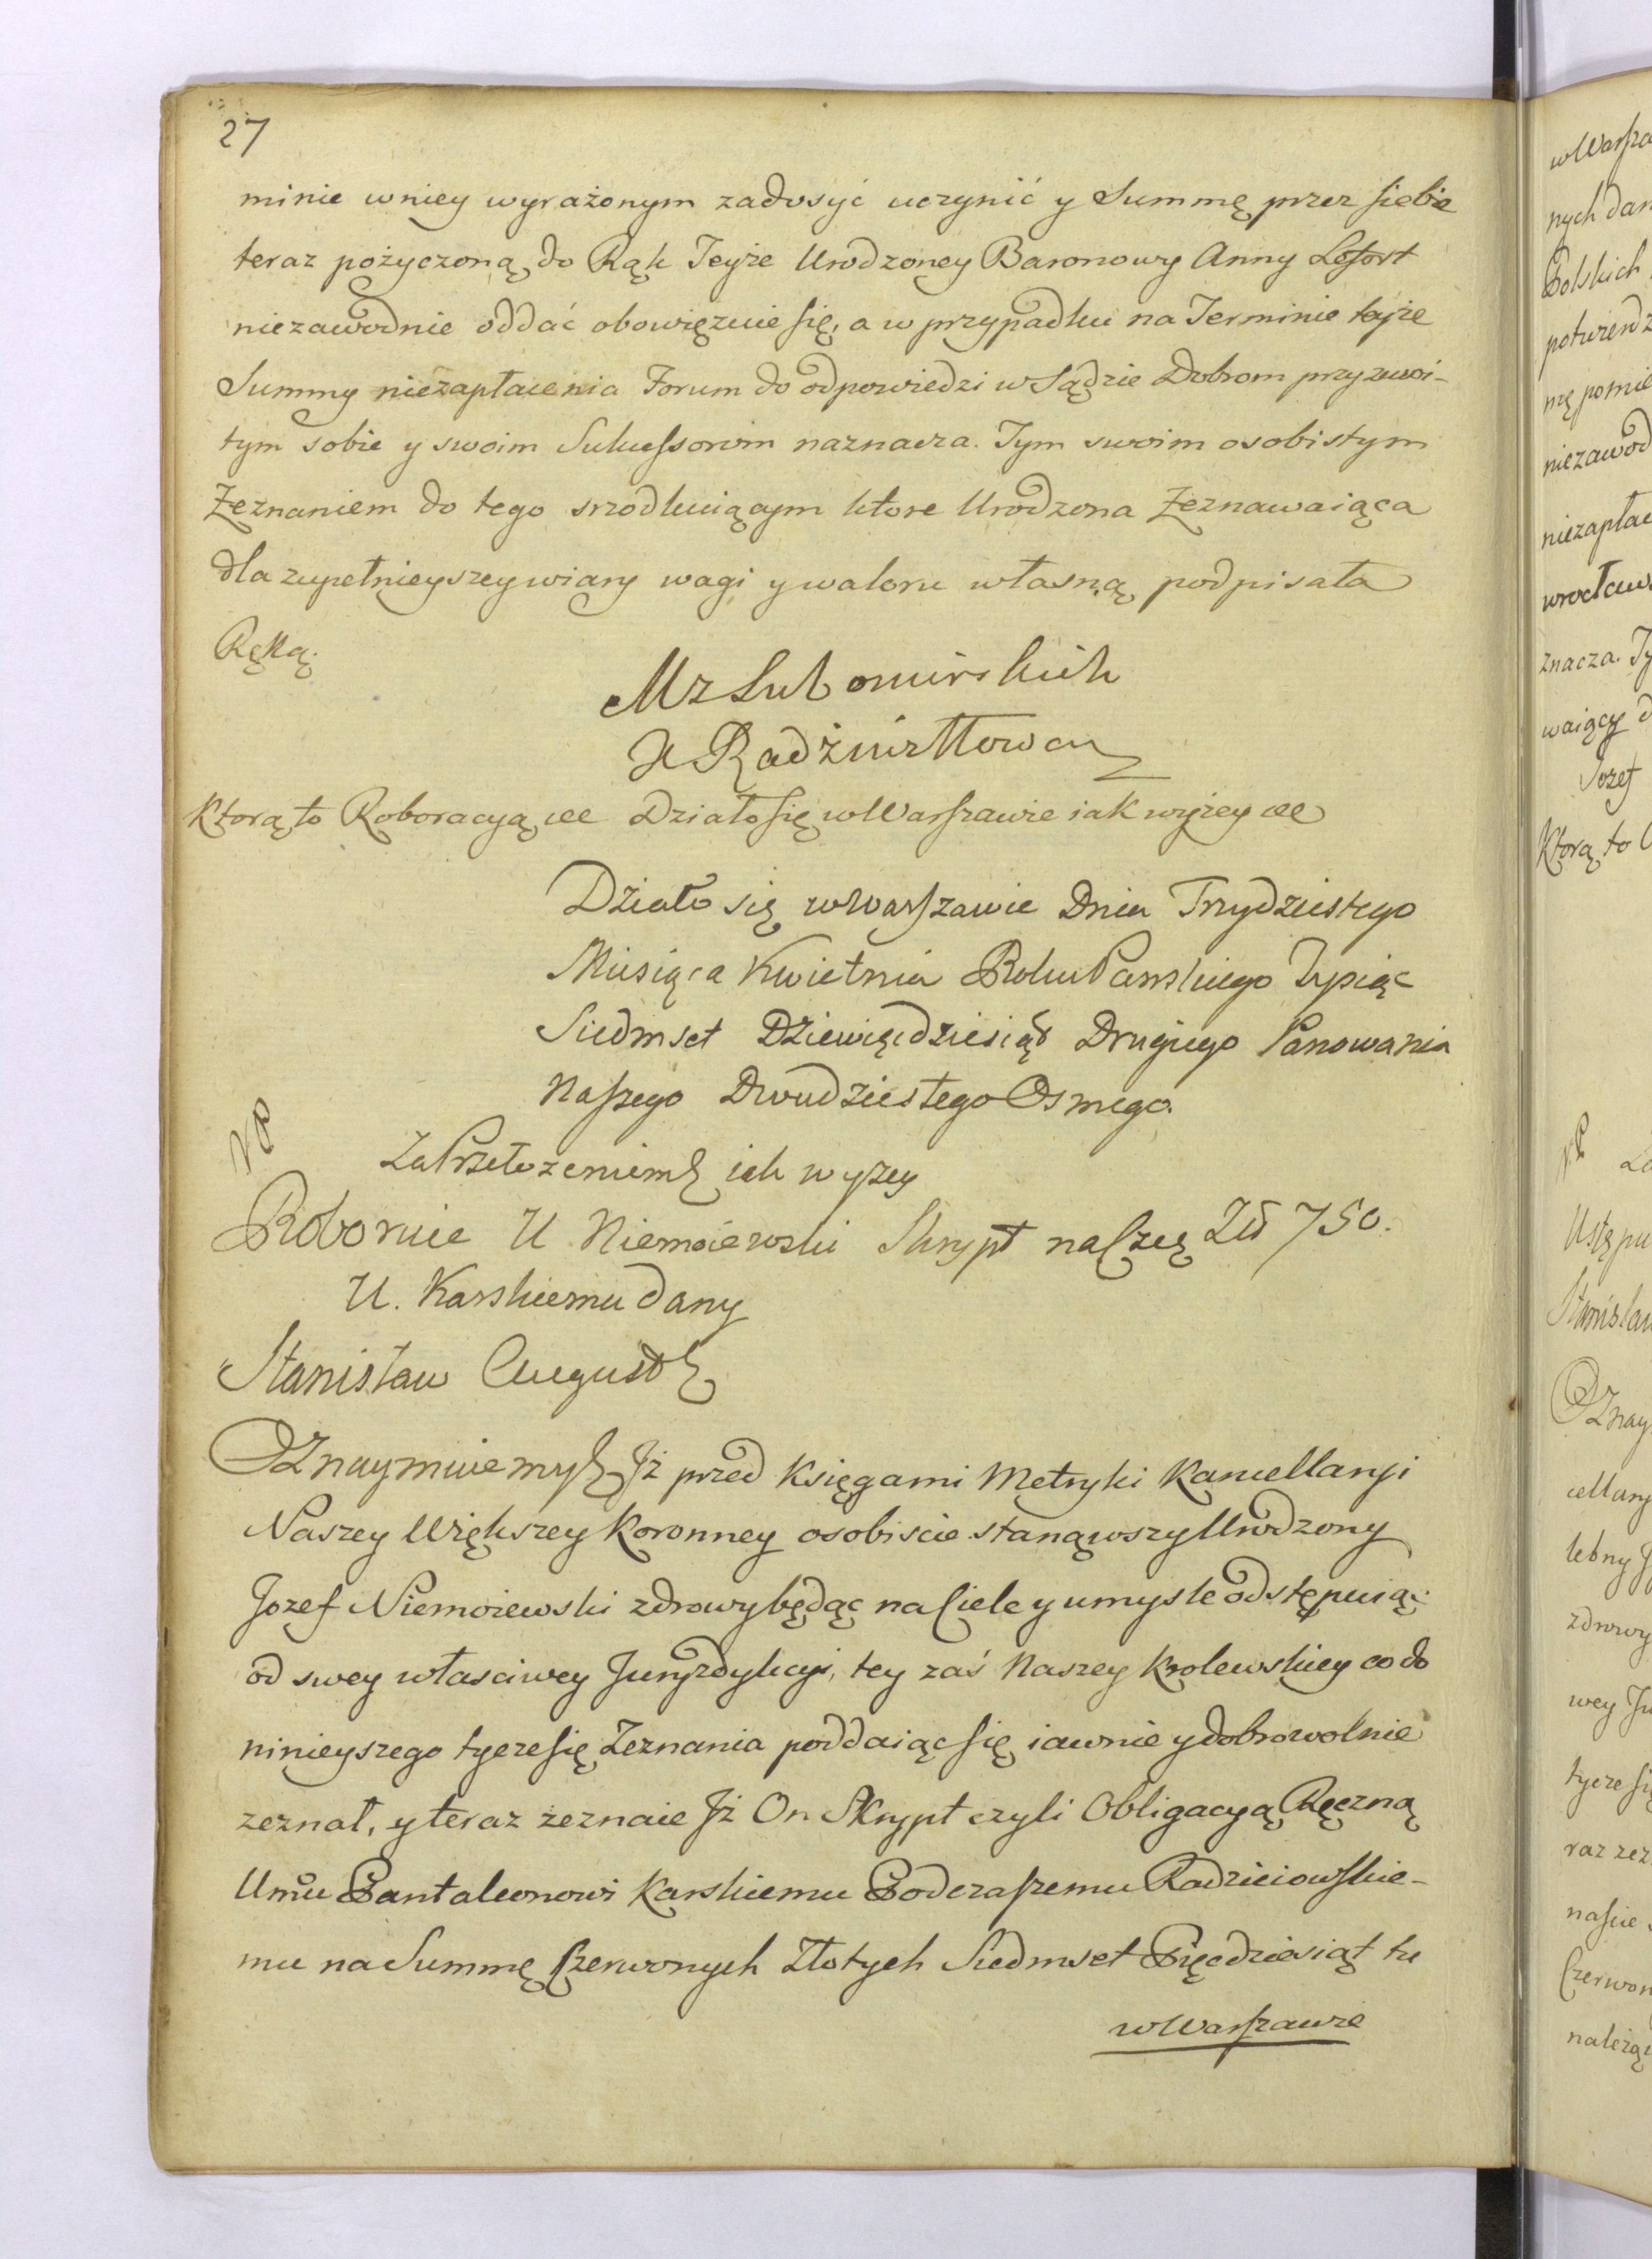 27
minie w niey wyrażonym zadosyć uczynić y Summę przez siebie
teraz pożyczoną do Rąk Teyże Urodzoney Baronowy Anny Lefort
niezawodnie oddać obowięzuie się, a w przypadku na Terminie tejże
Summy niezapłacenia Forum do odpowiedzi w Sądzie Dobrom przyzwoi-
tym sobie y swoim Sukcessorom naznacza. Tym swoim osobistym
Zeznaniem do tego srzodkuiącym które Urodzona Zeznawaiąca
dla zupełnieyszey wiary wagi y waloru własną podpisała
Ręką.
M z Lubomirskich
H Radźiwiłłowa
Którą to Roboracyą etc Działo się w Warszawie iak wyżey etc
Działo się w Warszawie Dnia Trzydziestego
Miesiąca Kwietnia Roku Pańskiego Tysiąc
Siedmset Dziewięćdziesiąt Drugiego Panowania
Naszego Dwudziestego Osmego.
Za Przełożeniem iak wyżey
Roboruie U. Niemoiewski Skrypt na Czeź Zł 750.
U. Karskiemu dany
Stanisław August
Oznaymuiemy Iż przed Księgami Metryki Kancellaryi
Naszey Większey Koronney osobiscie stanąwszy Urodzony
Jozef Niemoiewski zdrowy będąc na Ciele y umysle odstępuiąc
od swey własciwey Juryzdykcyi, tey zaś Naszey Krolewskiey co do
ninieyszego tycze się Zeznania poddaiąc się iawnie y dobrowolnie
zeznał, y teraz żeznaie Iż On Skrypt czyli Obligacyą Ręczną
Urmu Pantaleonowi Karskiemu Podczaszemu Radzieiowskie-
mu na Summę Czerwonych Złotych Siedmset Pięcdziesiąt tu
w Warszawie